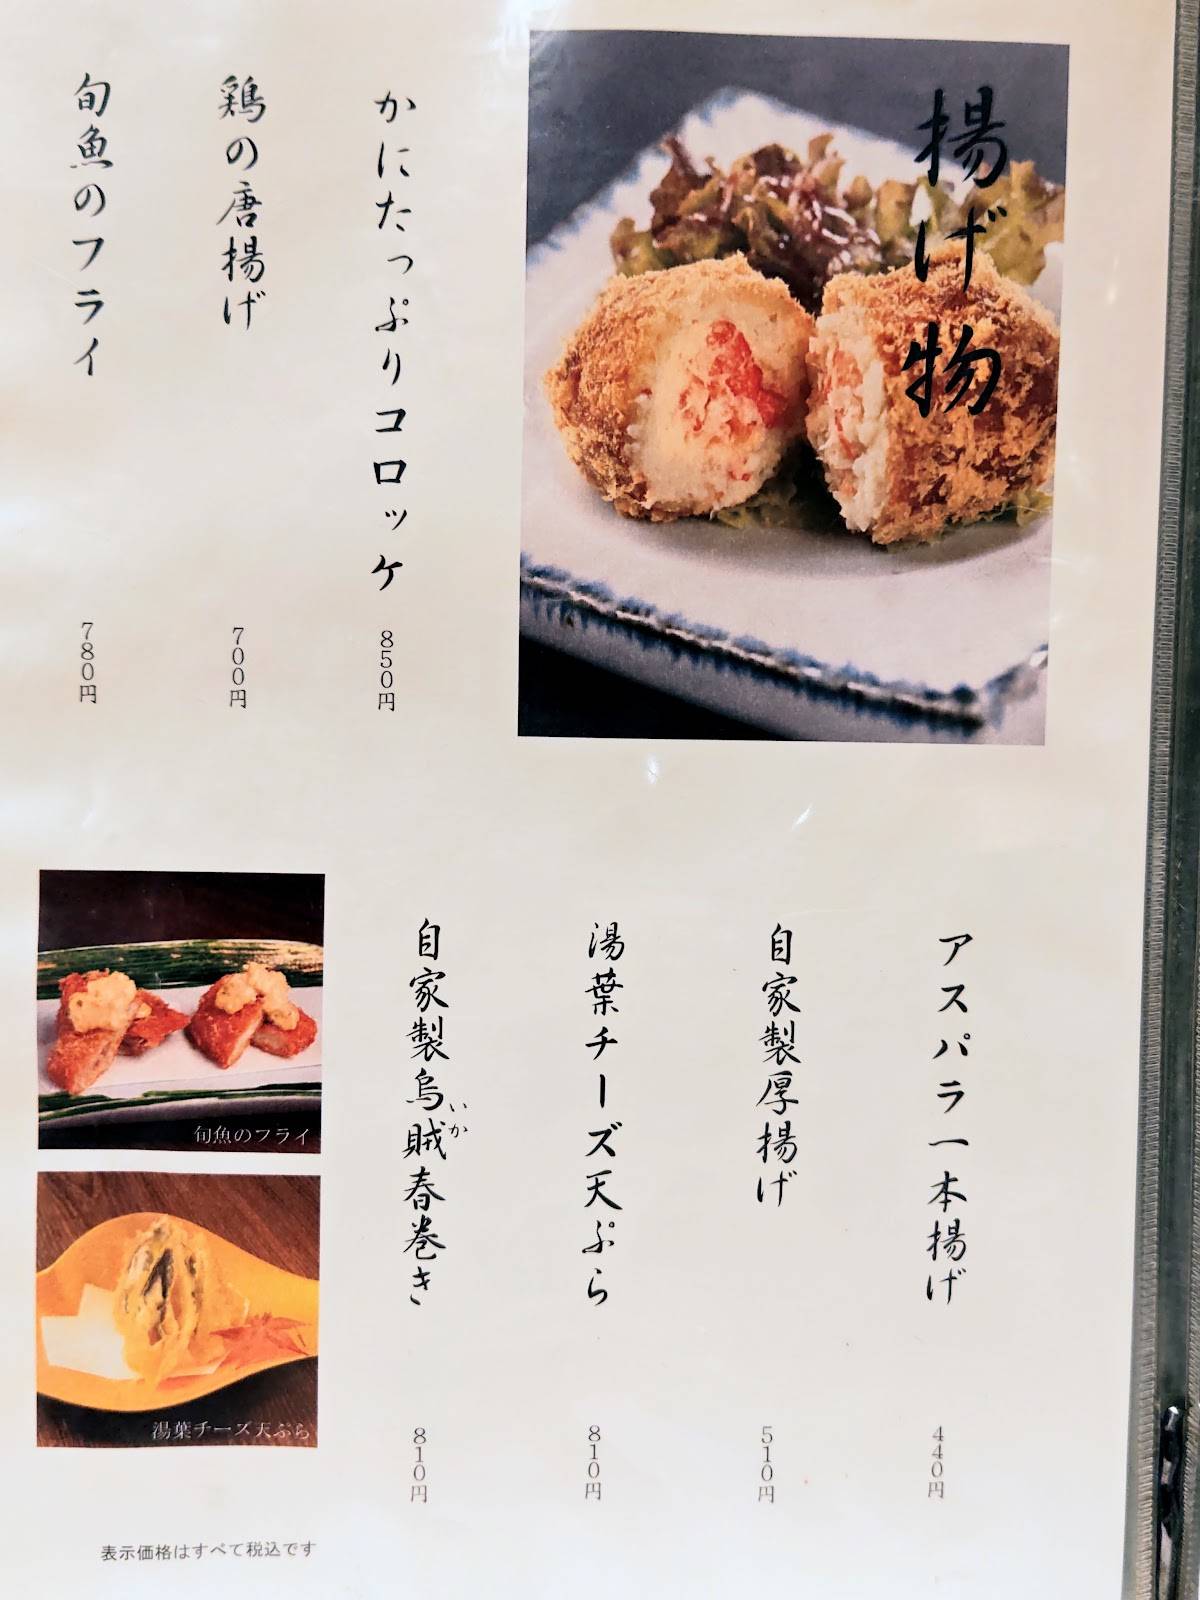 揚げ物
かにたっぷりコロッケ
850円
鶏の唐揚げ
700円
旬魚のフライ
780円
アスパラ一本揚げ
440円
自家製厚揚げ
510円
湯葉チーズ天ぷら
810円
自家製烏賊春巻き
いか
810円
旬魚のフライ
湯葉チーズ天ぷら
表示価格はすべて税込です